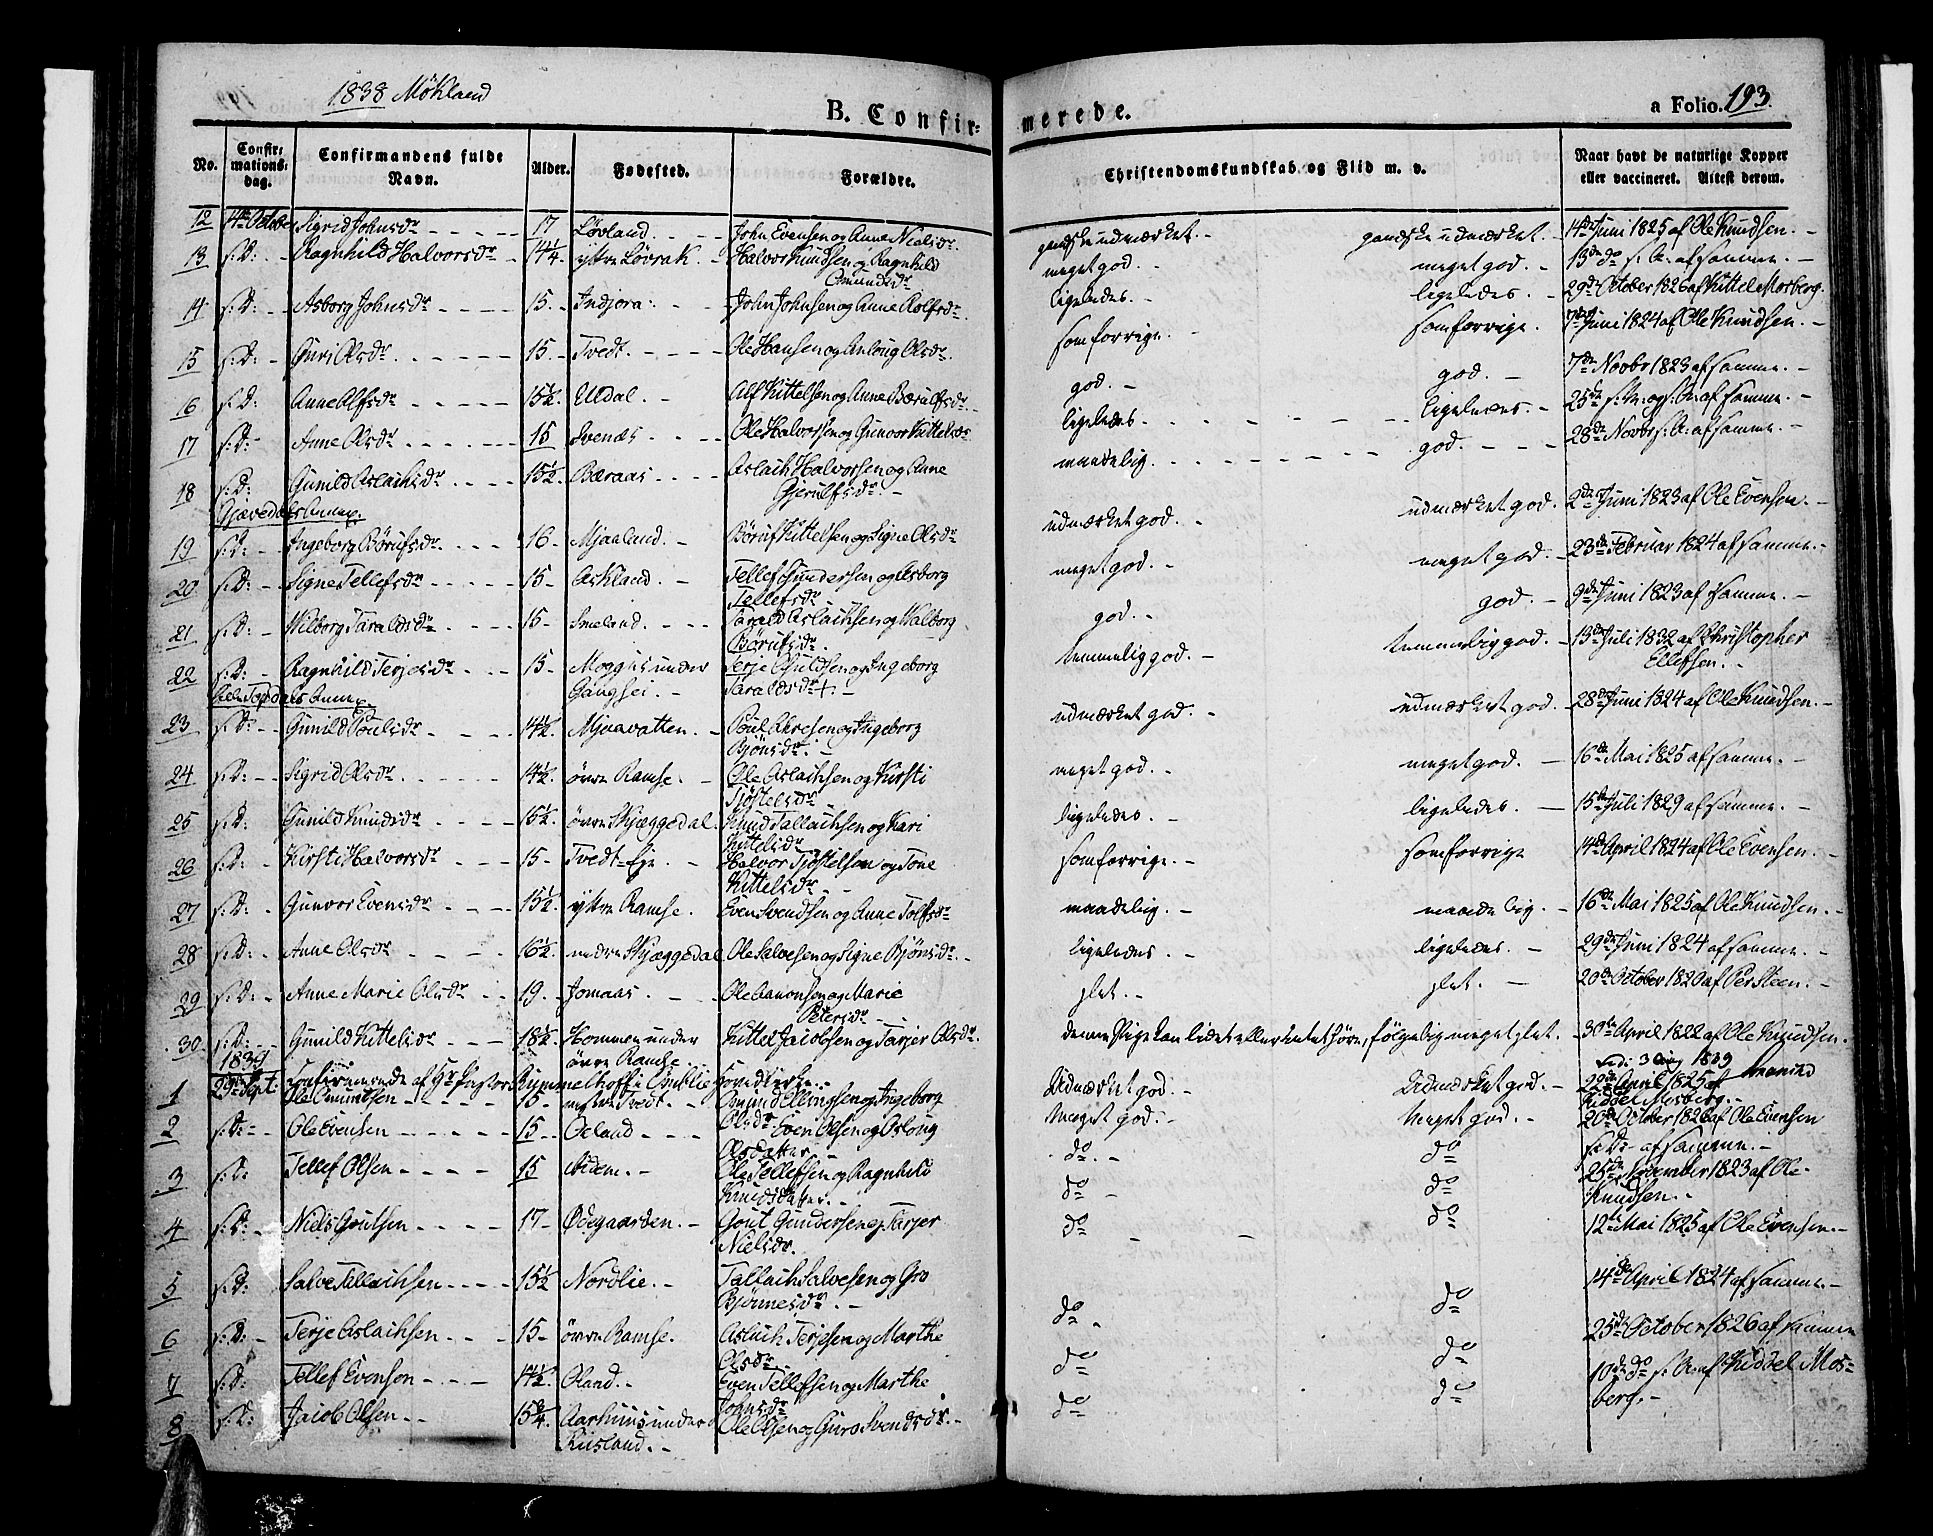 1838 Møkland
B. Confir-
merede.
a Folio. 193.
No.
Confir-
mations-
dag.
Confirmandens fulde
Navn.
Alder.
Fødested.
Forældre.
Christendomskundskab og Flid m. v.
Naar havt de naturlige Kopper
eller vaccineret. Attest derom.
12 14de October Sigrid Johnsdr 17 Løvland. John Evensen og Anne Nielsdr. gandske udmærket. gandske udmærket. 14de Juni 1825 af Ole Knudsen.
13 s: D: Ragnhild Halvorsdr 14¼. yttre Løvrak. Halvor Knudsen og Ragnhild
Omundsdr meget god. meget god. 13de do s: A: af samme.
14 s: D: Asborg Johnsdr 15. Indjora: John Johnsen og Anne Rolfsdr. ligeledes. ligeledes. 29de October 1826 af Kittel Mosberg.
15 s: D: Guri Olsdr. 15. Tvedt. Ole Hansen og Anloug Olsdr. som forrige. som forrige. 7de Juni 1824 af Ole Knudsen.
16 s: D: Anne Alfsdr 15½. Uldal. Alf Kittelsen og Anne Bærulfsdr. god. god. 7de Novbr 1823 af samme.
17 s: D: Anne Olsdr 15 Svenæs. Ole Halvorsen og Gunvor Kittelsdr ligeledes. ligeledes. 25de s: M: og s: A: af samme.
18 s: D: Gunild Aslachsdr. 15½. Bæraas Aslach Halvorsen og Anne
Gjerulfsdr. maadelig. god. 28de Novbr s: A: af samme.
Gjævedals Annex.
19 s: D: Ingeborg Børufsdr. 16. Mjaaland. Børuf Kittelsen og Signe Olsdr udmærket god. udmærket god. 2de Juni 1823 af Ole Evensen.
20 s: D: Signe Tellefsdr 15. Askland. Tellef Gundersen og Asborg
Tellefsdr. meget god. meget god. 23de Februar 1824 af samme.
21 s: D: Wilborg Taraldsdr 15. Smeland. Tarald Aslachsen og Valborg
Børufsdr. god. god. 9de Juni 1823 af samme.
22 s: D: Ragnhild Terjesdr 15. under
Gangsei. Terje og Ingeborg
Taraldsdr +. temmelig god. temmelig god. 13de Juli 1832 af Christopher
Ellefsen.
Topdals Annex.
23 s: D: Gunild Poulsdr 14½. Mjaavatten. Poul og Ingeborg
Bjønsdr. udmærket god. udmærket god. 28de Juni 1824 af Ole Knudsen.
24 s: D: Sigrid Olsdr. 14½. øvre Ramse. Ole Aslachsen og Kirsti
Tjøstelsdr meget god. meget god. 16de Mai 1825 af samme.
25 s: D: Gunild Knudsdr 15½. øvre Skjæggedal. Knud Tallachsen og Kari
Kittelsdr ligeledes. ligeledes. 15de Juli 1829 af samme.
26 s: D: Kirsti Halvorsdr 15. Tvedt-Eje. Halvor Tjøstelsen og Tone
Kittelsdr som forrige. som forrige 14de April 1824 af Ole Evensen.
27 s: D: Gunvor Evensdr 15½. yttre Ramse. Even Svendsen og Anne Tolfsdr maadelig. maadelig. 16de Mai 1825 af Ole Knudsen.
28 s: D: Anne Olsdr 16½. nedre Skjæggedal Ole Salvesen og Signe Bjønsdr. ligeledes. ligeledes. 29de Juni 1824 af samme.
29 s: D: Anne Marie Olsdr 19. Jomaas. Ole Aanonsen og Marie
Petersdr slet. slet. 20de October 1820 af Per Steen.
30. s: D: Gunild Kittelsdr 18½. Hommen under
øvre Ramse. Kittel Jacobsen og Tarjer Olsdr. denne Pige kan lidet eller intet høre, følgelig meget slet. 30te April 1822 af Ole Knudsen.
1839 Confirmerede af Hr Pastor Rummelhoff i Omblie Hovedkirke.
1 29de Sept: Ole Omundsen 15. Tvedt. Omund Ellingsen og Ingeborg
Olsdr Udmærket god. Udmærket god. 22de April 1825 af
Kiddel Mosberg.
2 s: D: Ole Evensen 15. Oeland Even Olsen og Asloug
Olsdatter Meget god. Meget god. 20de October 1826 af Ole Evensen
3 s: D: Tellef Olsen 15 Ole Tellefsen og Ragnhild
Knudsdatter. do. do s: D: af samme.
4 s: D: Niels Goutsen 17. Ødegaarden. Gout Gundersen og Tarjer
Nielsdr. do do 25de November 1823 af Ole
Knudsen.
5 s: D: Salve Tellachsen 15½ Nordlie. Tallach Salvesen og Gro
Bjørnesdr. do do 12te Mai 1825 af Ole Evensen.
6 s: D: Terje Aslachsen 15. øvre Ramse. Aslach Terjesen og Marthe
Olsdr do do 14de April 1824 af samme.
7 s: D: Tellef Evensen 14½. Oland. Even Tellefsen og Marthe
Johnsdr do do 25de October 1826 af samme
8 s: D: Jacob Olsen 15¾. Aashuus under
Riisland. Ole Olsen og Guro Svendsdr. do do 10de do s: A: af Kiddel Mos-
berg.